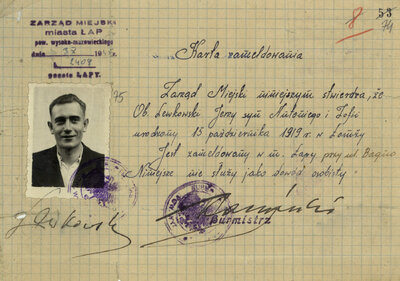 ZARZĄD MIEJSKI
miasta ŁAP
pow. wysoko-mazowieckiego
dnia
L. 2409
poczta ŁAPY.
8
53
74
Karta zameldowania
75
Zarząd Miejski niniejszym stwierdza, że
Ob. Lenkowski Jerzy syn Antoniego i Zofii
urodzony 15 października 1919 r. w Łomży
Jest zameldowany w m. Łapy przy ul. Bagno
Niniejsze nie służy jako dowód osobisty
Burmistrz